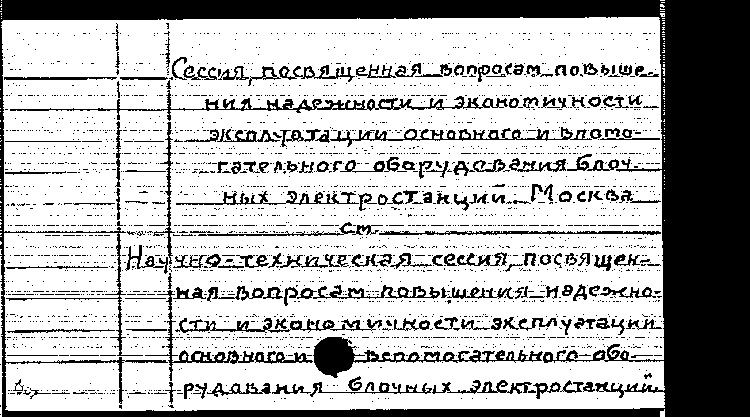 Сессия, посвященная вопросам повыше-
ния надежности и экономичности
эксплуатации основного и вспомо-
гательного оборудования блоч-
ных электростанций. Москва
см.
Научно-техническая сессия, посвящен-
ная вопросам повышения надежно-
сти и экономичности эксплуатации
основного и вспомогательного обо-
рудования блочных электростанций.